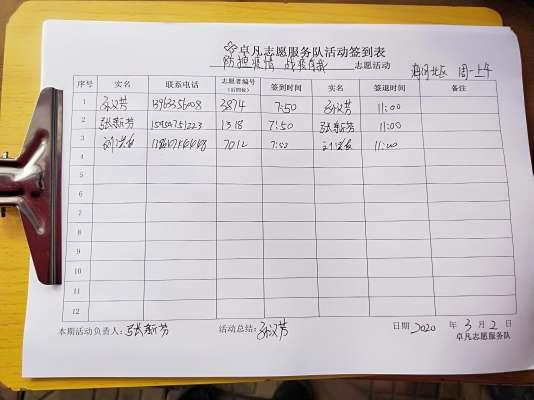 卓凡志愿服务队活动签到表
防控疫情 战疫有我 志愿活动 周一上午
序号 实名 联系电话 志愿者编号（后四位） 签到时间 实名 签退时间 备注
1 孙汉芳 3874 7:50 孙汉芳 11:00
2 张新芳 1318 7:50 张新芳 11:00
3 7012 7:50 11:00
4
5
6
7
8
9
10
11
12
本期活动负责人：张新芳 活动总结：孙汉芳 日期 2020 年 3 月 2 日
卓凡志愿服务队